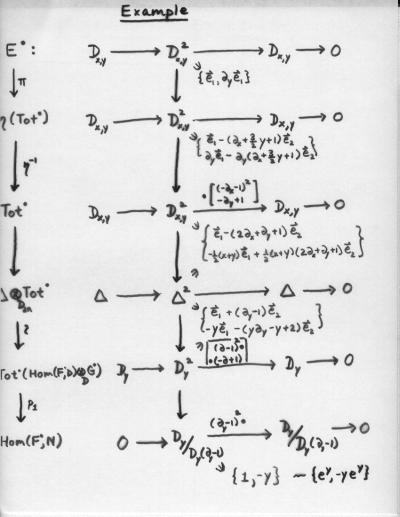 Example
E˙: D_{x,y} → D²_{x,y} → D_{x,y} → 0
↓π {e⃗₁, ∂_y e⃗₁}
η(Tot˙) D_{x,y} → D²_{x,y} → D_{x,y} → 0
↓η⁻¹ { e⃗₁-(∂_x+3/2y+1)e⃗₂
∂_y e⃗₁-∂_y(∂_x+3/2y+1)e⃗₂ }
Tot˙ D_{x,y} → D²_{x,y} ·[(-∂_x-1)² -∂_y+1] → D_{x,y} → 0
{ e⃗₁-(2∂_x+∂_y+1)e⃗₂
-½(x+y)e⃗₁+½(x+y)(2∂_x+∂_y+1)e⃗₂ }
Δ⊗_{D_{2n}}Tot˙ Δ → Δ² → Δ → 0
↓ { e⃗₁+(∂_y-1)e⃗₂
-ye⃗₁-(y∂_y-y+2)e⃗₂ }
Tot˙(Hom(F˙,D)⊗_D G˙) D_y → D_y² [(∂-1)²· ·(-∂+1)] → D_y → 0
↓p₁
Hom(F˙,N) 0 → D_y/D_y(∂_y-1) (∂_y-1)²· → D_y/D_y(∂_y-1) → 0
{1, -y} ~ {e^y, -ye^y}